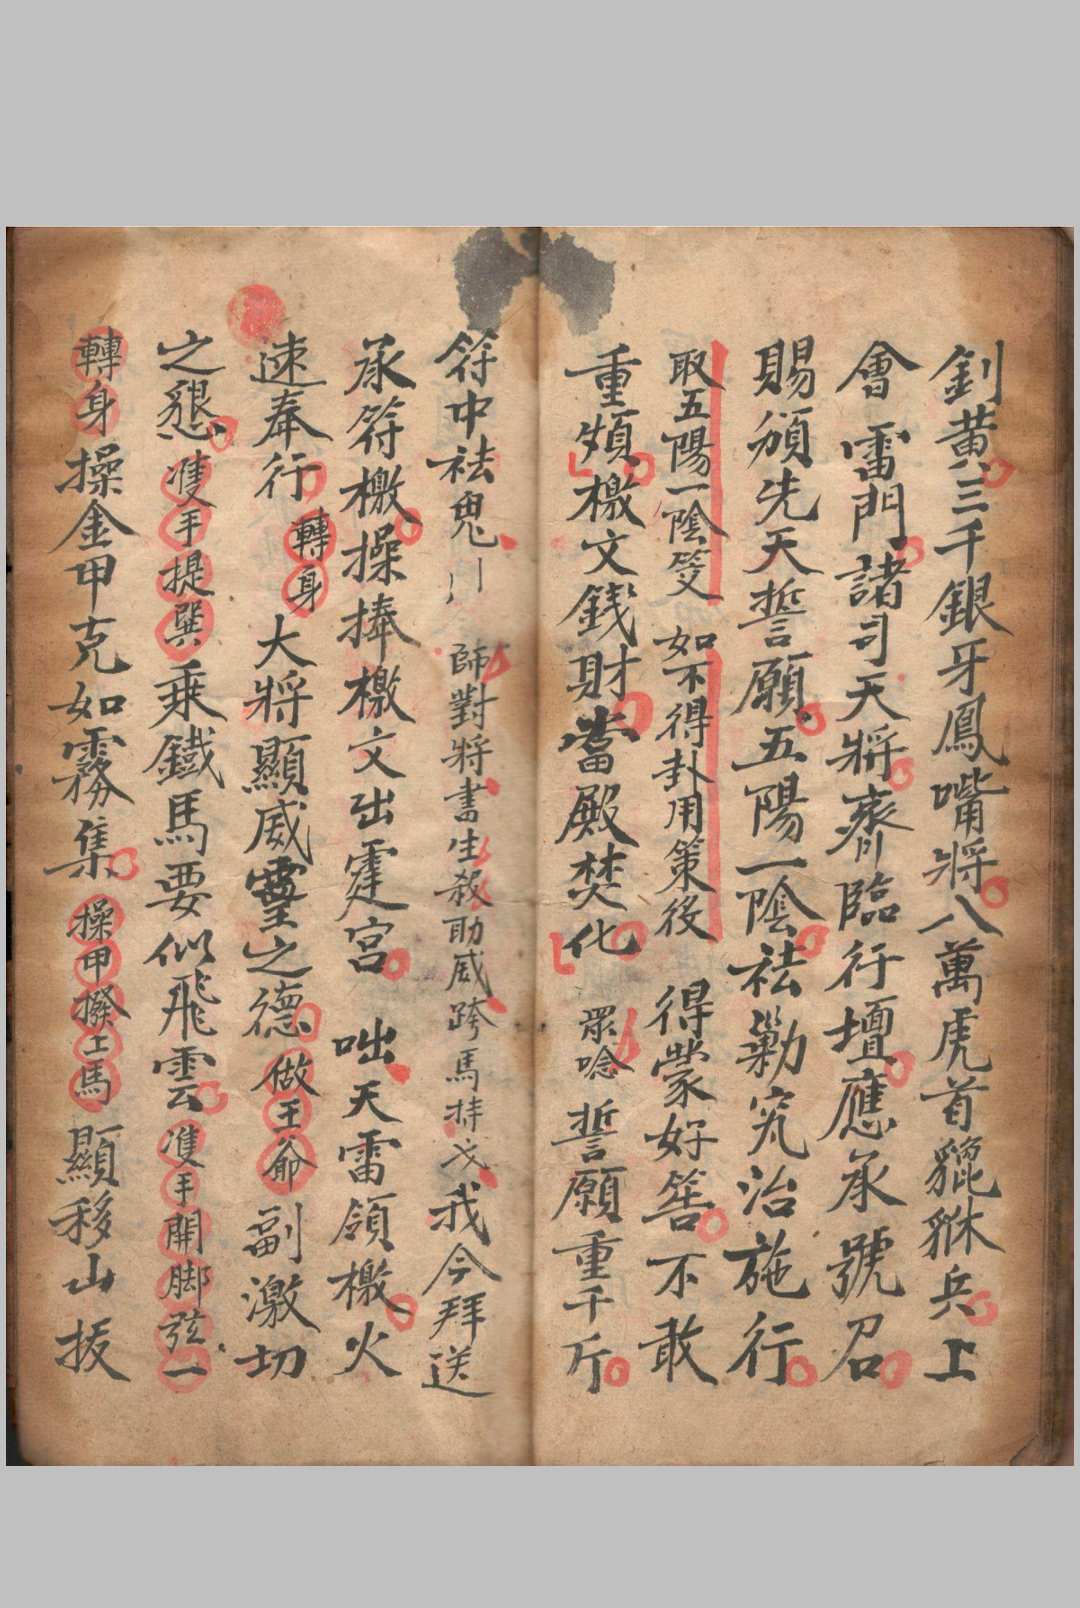 釗黄三千銀牙鳳嘴將八萬虎首貔貅兵上
會雷門諸司天將齊臨行壇應承號召
賜頒先天誓願五陽一陰祛勦究治施行
取五陽一陰筊如不得卦用策後得蒙好筶不敢
重煩檄文錢財當殿焚化眾唸誓願重千斤
符中祛鬼川師對將書生殺助威跨馬持戈我今拜送
承符檄操捧檄文出霆宮咄天雷領檄火
速奉行轉身大將顯威靈之德做王爺副激切
之懇雙手提巽乘鐵馬要似飛雲雙手開脚弦一
轉身操金甲克如霧集操甲撥上馬顯移山拔